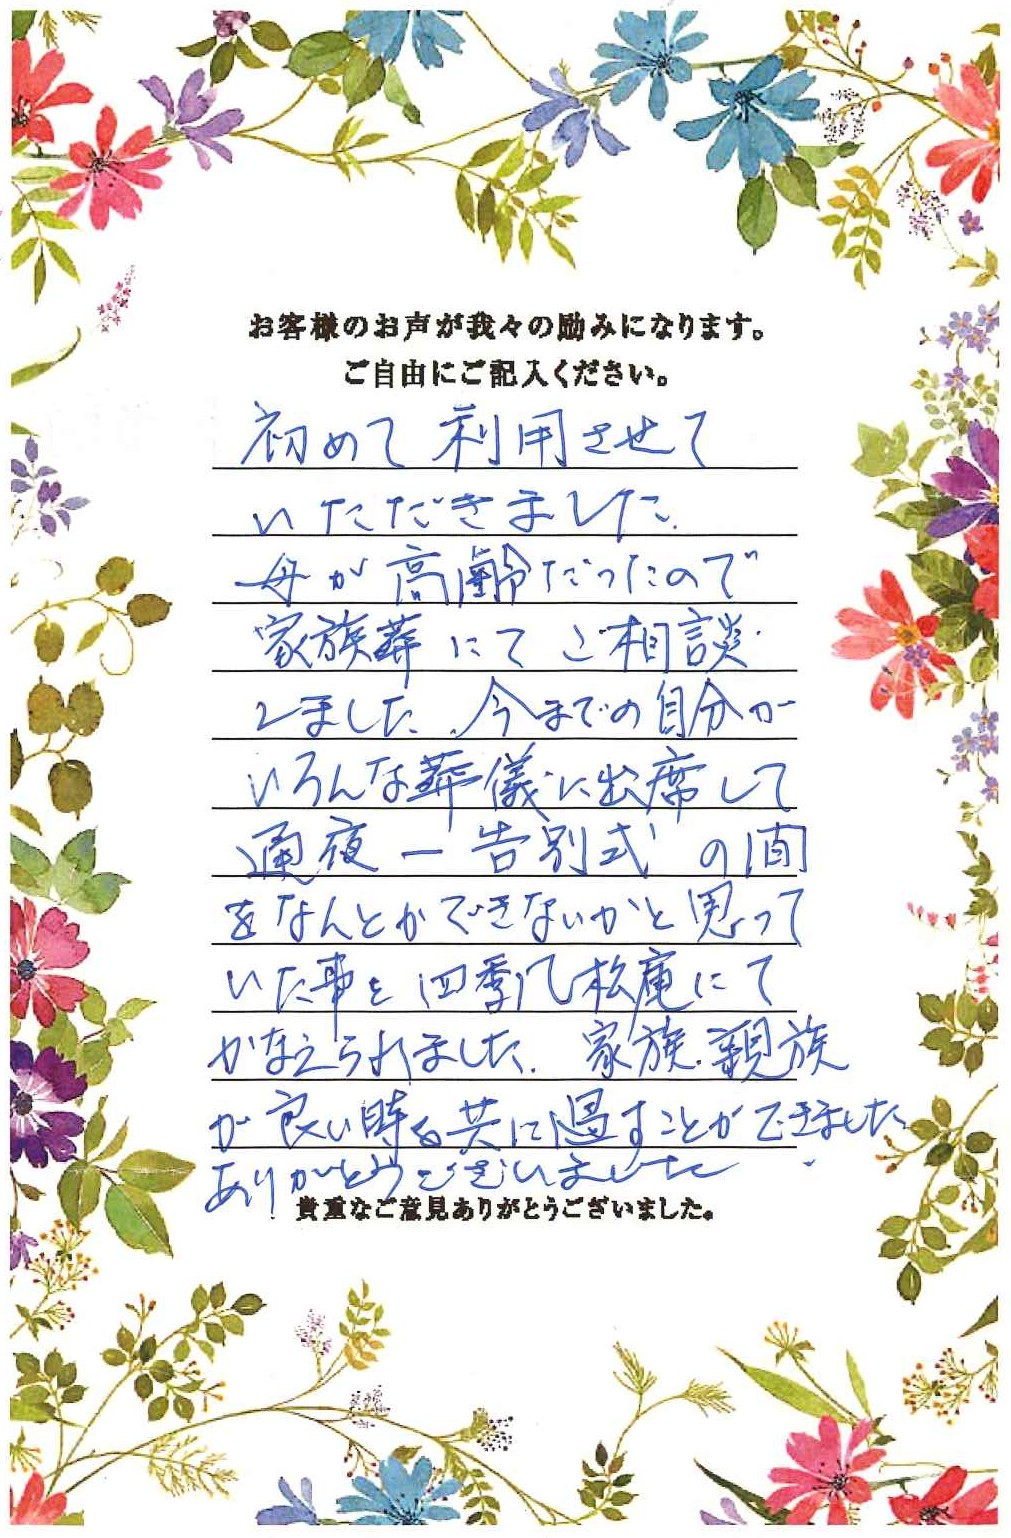 お客様のお声が我々の励みになります。
ご自由にご記入ください。
初めて利用させて
いただきました.
母が高齢だったので
家族葬にてご相談
しました。今までの自分が
いろんな葬儀に出席して
通夜ー告別式の間
をなんとかできないかと思って
いた事を四季乃松庵にて
かなえられました. 家族.親族
が良い時を共に過すことができました
ありがとうございました
貴重なご意見ありがとうございました。